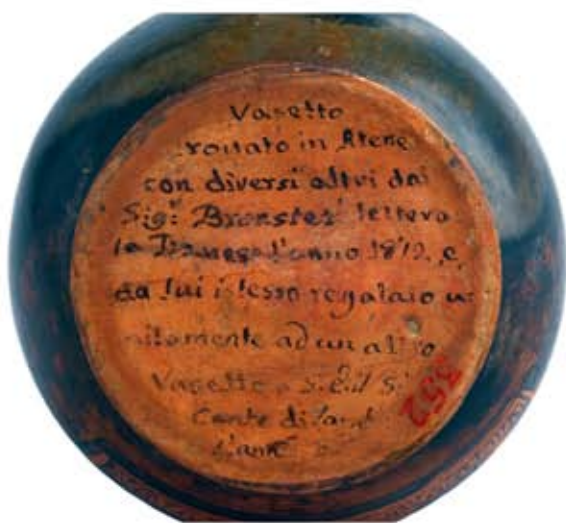 Vasetto
rovato in Atene
con diversi altri dal
Sig.r Bronsted lettera
to Danese l'anno 1812, e
da lui istesso regalato u
nitamente ad un altro
Vasetto a S. E. il Si
Conte di
L'anno
352